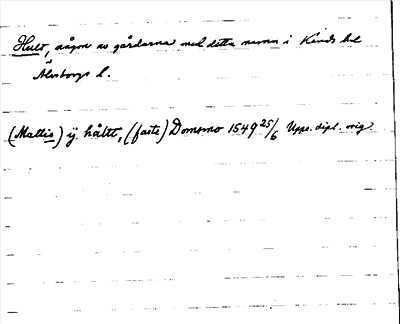 Hult, någon av gårdarna med detta namn i Kinds hd
Älvsborgs l.
(Mattis) ÿ håltt, (faste) Domsmo 1549 25/6 Upps. dipl. orig